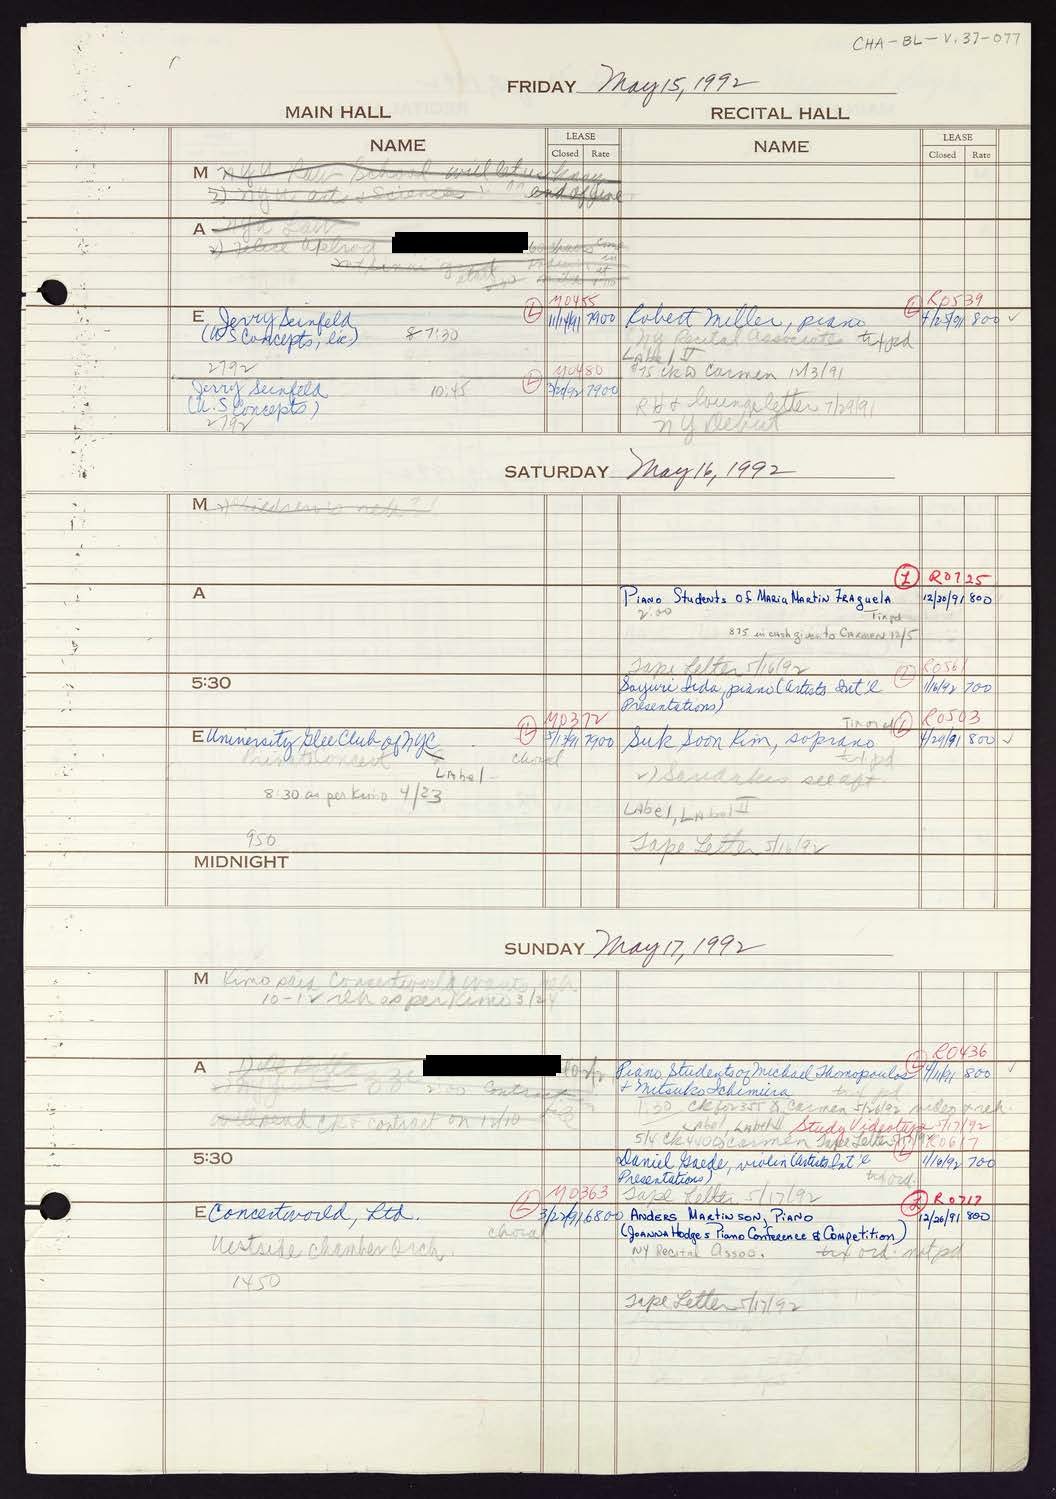 CHA-BL-V.37-077
FRIDAY May 15, 1992
MAIN HALL RECITAL HALL
NAME LEASE Closed Rate NAME LEASE Closed Rate
M NYU Law School will let us know
2) NYU Arts & Sciences " " end of June
A NYU Law
E Jerry Seinfeld
(U.S Concepts, Inc) 8 7:30
L M0455
11/14/91 7900
2792
Jerry Seinfeld 10:45
(U.S Concepts)
L M0480
3/20/92 7900
2792
L R0539
Robert Miller, piano 4/25/91 800 ✓
NY Recital Associates tix pd
Label II
$75 ck to Carmen 12/3/91
RH & lounge letter 7/29/91
NY Debut
SATURDAY May 16, 1992
M
A
L R0725
Piano Students of Maria Martin Fraguela 12/30/91 800
2:00 Tix pd
875 in cash given to Carmen 12/5
Tape Letter 5/16/92
5:30
L R0561
Sayuri Iida, piano (Artists Int'l 1/16/92 700
Presentations)
L M0372
E University Glee Club of NYC 5/17/91 7900
choral
Label
8:30 as per Kimo 4/23
950
L R0503
Suk Soon Kim, soprano 4/29/91 800 ✓
tix pd
Label, Label II
Tape Letter 5/16/92
MIDNIGHT
SUNDAY May 17, 1992
M Kimo said Concertworld wants reh
10-12 reh as per Kimo 3/24
A
2:00 Contract
ck & contract on 12/10
L R0436
Piano Students of Michael Thomopoulos 800 ✓
+ Mitsuko Ichimura tix pd
1:30 ck for 355 to Carmen 5/26/92 video & reh.
Label, Label II Study Videotape 5/17/92
Tape Letter
5:30
L R0617
Daniel Gaede, violin (Artists Int'l 1/16/92 700
Presentations) tix ord.
Tape Letter 5/17/92
L M0363
E Concertworld, Ltd. 3/27/91 6800
choral
Westside Chamber Orch.
1450
L R0717
Anders Martinson, Piano 12/26/91 800
(Joanna Hodges Piano Conference & Competition)
NY Recital Assoc. tix ord. not pd
Tape Letter 5/17/92